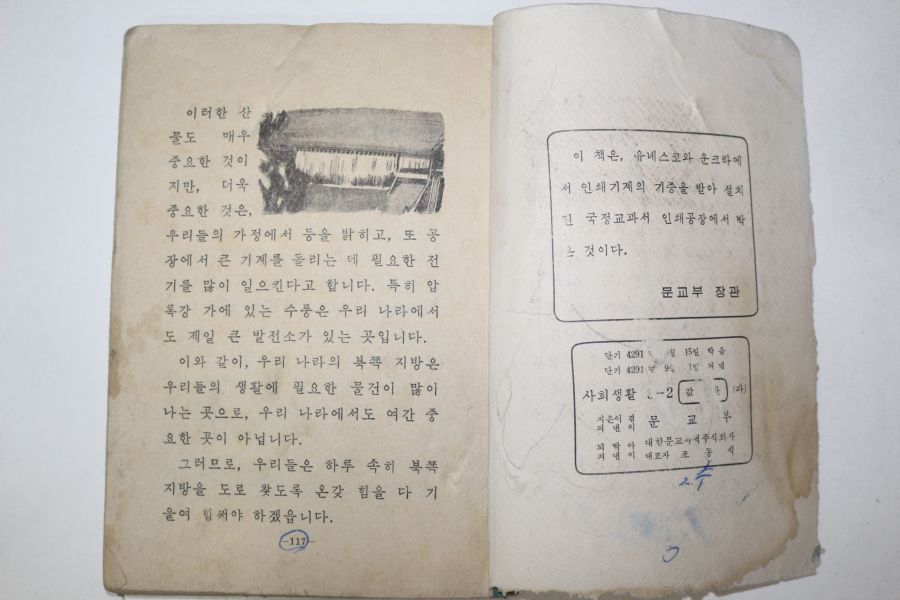 이러한 산
물도 매우
중요한 것이
지만, 더욱
중요한 것은,
우리들의 가정에서 등을 밝히고, 또 공
장에서 큰 기계를 돌리는 데 필요한 전
기를 많이 일으킨다고 합니다. 특히 압
록강 가에 있는 수풍은 우리 나라에서
도 제일 큰 발전소가 있는 곳입니다.
이와 같이, 우리 나라의 북쪽 지방은
우리들의 생활에 필요한 물건이 많이
나는 곳으로, 우리 나라에서도 여간 중
요한 곳이 아닙니다.
그러므로, 우리들은 하루 속히 북쪽
지방을 도로 찾도록 온갖 힘을 다 기
울여 힘써야 하겠읍니다.
—117—
이 책은, 유네스코와 운크라에
서 인쇄기계의 기증을 받아 설치
된 국정교과서 인쇄공장에서 박
는 것이다.
문교부 장관
단기 4291 월 15일 박음
단기 4291년 9월 1일 펴냄
사회생활 -2 값
지은이 겸 펴낸이 문교부
박아 펴낸이 대한문교서적주식회사
대표자 조동식
2. 수